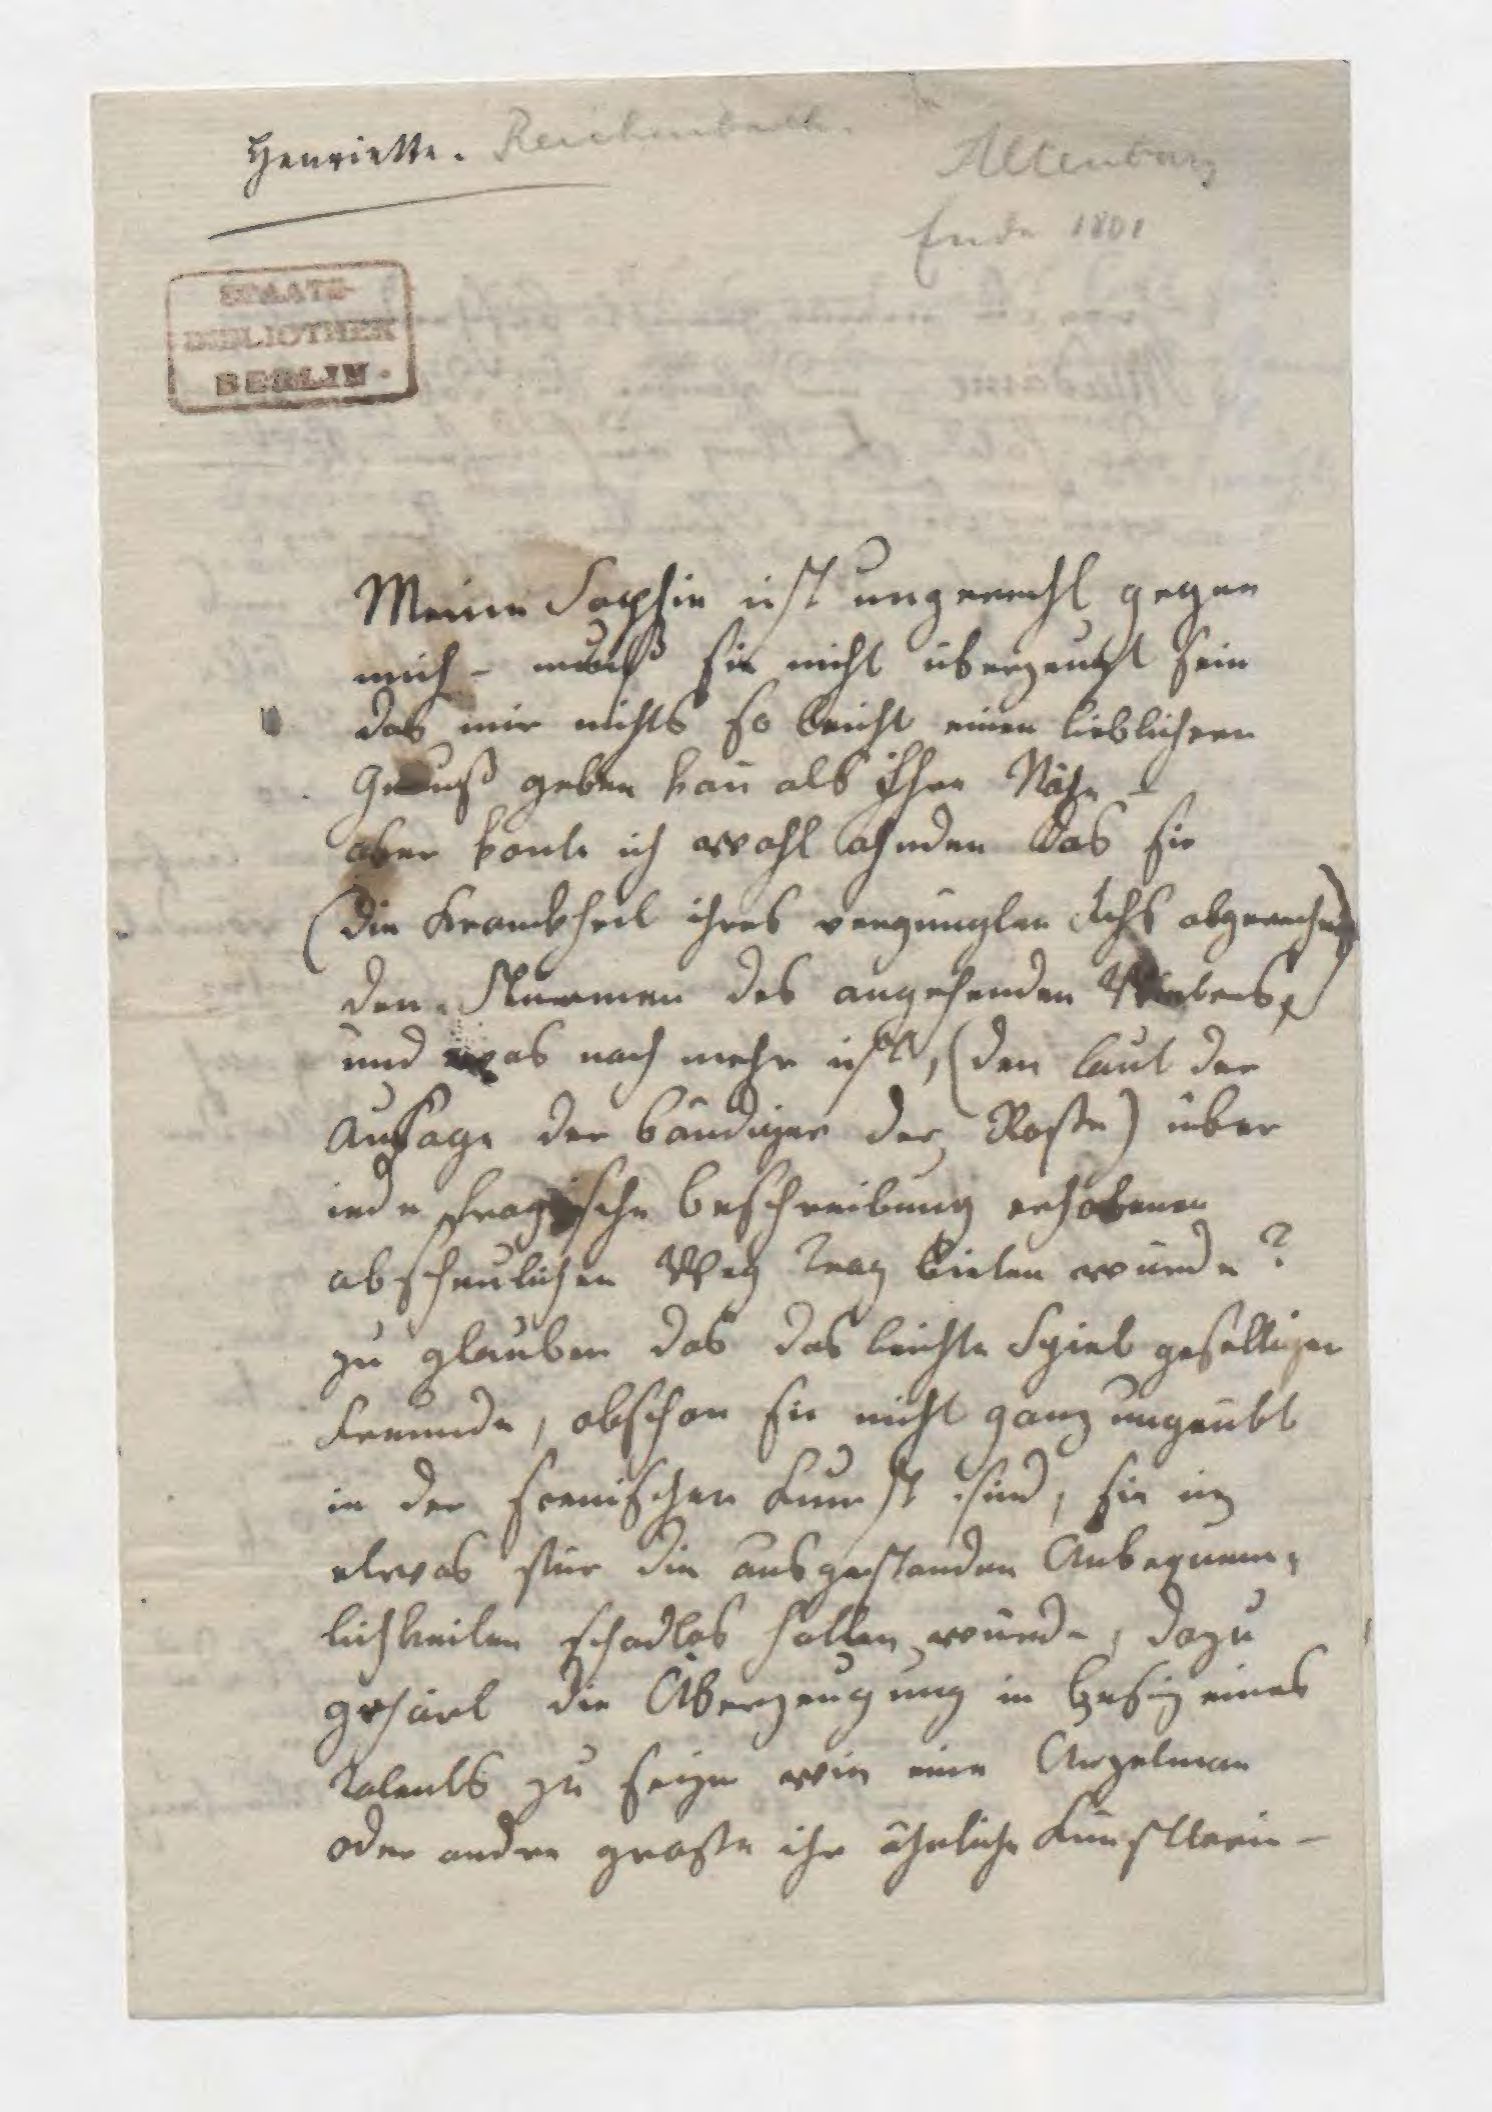 Henriette. Reichenbach.
Altenburg
Ende 1801
STAATS-
BIBLIOTHEK
BERLIN
Meine Sophie ist ungerecht gegen
mich - muß sie nicht überzeugt sein
das mir nichts so leicht einen lieblichern
Genuß geben kan̄ als ihre Nähe -
aber konte ich wohl ahnden das sie
(die Krankheit ihres verjüngten Ichs abgerechnet)
den Sturmen des angehenden Winters,
und was noch mehr ist, (den laut der
Aussage der bändiger der Roße) über
iede tragische beschreibung erhobenen
abscheulichen Weg Troz bieten würde?
zu glauben das das leichte Spiel geselliger
Freunde, obschon sie nicht ganz ungeübt
in der scenischen Kunst sind, sie um
etwas für die ausgestanden Unbequem-
lichkeiten schadlos halten würde, dazu
gehört die Überzeugung in besiz eines
Talents zu seyn wie eine Unzelman
oder andre große ihr ähnliche Künstlerin -